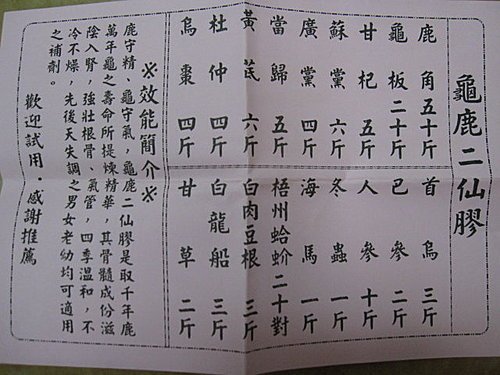 龜鹿二仙膠
鹿角五十斤
首烏三斤
龜板二十斤
巴參二斤
甘杞五斤
人參十斤
蘇黨六斤
冬蟲一斤
廣黨四斤
海馬一斤
當歸五斤
梧州蛤蚧二十對
黃芪六斤
白肉豆根三斤
杜仲四斤
白龍船三斤
烏棗四斤
甘草二斤
※效能簡介※
鹿守精，龜守氣，龜鹿二仙膠是取千年鹿
萬年龜之壽命所提煉精華，其骨髓成份滋
陰入腎，強壯根骨、氣管，四季溫和，不
冷不燥，先後天失調之男女老幼均可適用
之補劑。
歡迎試用．感謝推薦